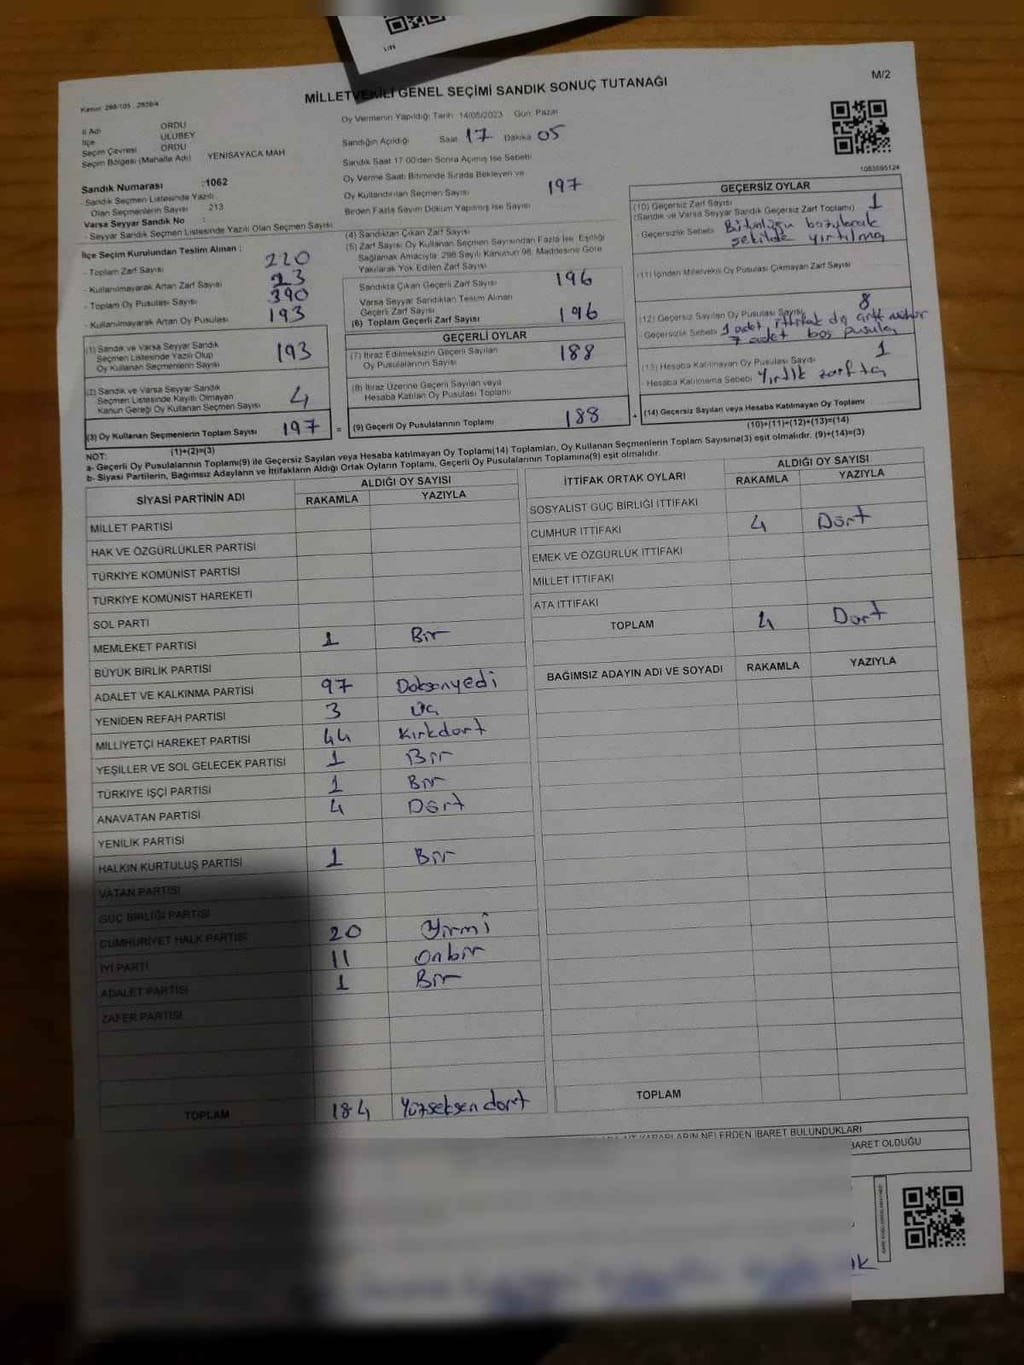 M/2
MİLLETVEKİLİ GENEL SEÇİMİ SANDIK SONUÇ TUTANAĞI
İl Adı ORDU
İlçe ULUBEY
Seçim Çevresi ORDU
Seçim Bölgesi (Mahalle Adı) YENISAYACA MAH
Sandık Numarası :1062
- Sandık Seçmen Listesinde Yazılı
Olan Seçmenlerin Sayısı 213
Varsa Seyyar Sandık No :
- Seyyar Sandık Seçmen Listesinde Yazılı Olan Seçmen Sayısı
İlçe Seçim Kurulundan Teslim Alınan :
- Toplam Zarf Sayısı 220
- Kullanılmayarak Artan Zarf Sayısı 23
- Toplam Oy Pusulası Sayısı 390
- Kullanılmayarak Artan Oy Pusulası 193
(1) Sandık ve Varsa Seyyar Sandık
Seçmen Listesinde Yazılı Olup
Oy Kullanan Seçmenlerin Sayısı 193
(2) Sandık ve Varsa Seyyar Sandık
Seçmen Listesinde Kayıtlı Olmayan
Kanun Gereği Oy Kullanan Seçmen Sayısı 4
(3) Oy Kullanan Seçmenlerin Toplam Sayısı 197 =
(1)+(2)=(3)
Oy Vermenin Yapıldığı Tarih 14/05/2023 Gün: Pazar
Sandığın Açıldığı Saat 17 Dakika 05
Sandık Saat 17:00'den Sonra Açılmış İse Sebebi
Oy Verme Saati Bitiminde Sırada Bekleyen ve
Oy Kullandırılan Seçmen Sayısı 197
Birden Fazla Sayım Döküm Yapılmış İse Sayısı
(4) Sandıktan Çıkan Zarf Sayısı
(5) Zarf Sayısı Oy Kullanan Seçmen Sayısından Fazla İse, Eşitliği
Sağlamak Amacıyla, 298 Sayılı Kanunun 98. Maddesine Göre
Yakılarak Yok Edilen Zarf Sayısı
Sandıkta Çıkan Geçerli Zarf Sayısı 196
Varsa Seyyar Sandıktan Teslim Alınan
Geçerli Zarf Sayısı
(6) Toplam Geçerli Zarf Sayısı 196
GEÇERLİ OYLAR
(7) İtiraz Edilmeksizin Geçerli Sayılan
Oy Pusulalarının Sayısı 188
(8) İtiraz Üzerine Geçerli Sayılan veya
Hesaba Katılan Oy Pusulası Toplamı
(9) Geçerli Oy Pusulalarının Toplamı 188 +
1083695124
GEÇERSİZ OYLAR
(10) Geçersiz Zarf Sayısı 1
(Sandık ve Varsa Seyyar Sandık Geçersiz Zarf Toplamı)
Geçersizlik Sebebi Bütünlüğü bozularak
şekilde yırtılma
(11) İçinden Milletvekili Oy Pusulası Çıkmayan Zarf Sayısı
(12) Geçersiz Sayılan Oy Pusulası Sayısı 8
Geçersizlik Sebebi 1 adet ittifak dış mühür
7 adet boş pusula
(13) Hesaba Katılmayan Oy Pusulası Sayısı 1
Hesaba Katılmama Sebebi Yırtık zarfta
(14) Geçersiz Sayılan veya Hesaba Katılmayan Oy Toplamı
(10)+(11)+(12)+(13)=(14)
NOT:
a- Geçerli Oy Pusulalarının Toplamı(9) ile Geçersiz Sayılan veya Hesaba katılmayan Oy Toplamı(14) Toplamları, Oy Kullanan Seçmenlerin Toplam Sayısına(3) eşit olmalıdır. (9)+(14)=(3)
b- Siyasi Partilerin, Bağımsız Adayların ve İttifakların Aldığı Ortak Oyların Toplamı, Geçerli Oy Pusulalarının Toplamına(9) eşit olmalıdır.
SİYASİ PARTİNİN ADI ALDIĞI OY SAYISI
RAKAMLA YAZIYLA
MİLLET PARTİSİ
HAK VE ÖZGÜRLÜKLER PARTİSİ
TÜRKİYE KOMÜNİST PARTİSİ
TÜRKİYE KOMÜNİST HAREKETİ
SOL PARTİ
MEMLEKET PARTİSİ 1 Bir
BÜYÜK BİRLİK PARTİSİ
ADALET VE KALKINMA PARTİSİ 97 Doksanyedi
YENİDEN REFAH PARTİSİ 3 Üç
MİLLİYETÇİ HAREKET PARTİSİ 44 Kırkdört
YEŞİLLER VE SOL GELECEK PARTİSİ 1 Bir
TÜRKİYE İŞÇİ PARTİSİ 1 Bir
ANAVATAN PARTİSİ 4 Dört
YENİLİK PARTİSİ
HALKIN KURTULUŞ PARTİSİ 1 Bir
VATAN PARTİSİ
GÜÇ BİRLİĞİ PARTİSİ
CUMHURİYET HALK PARTİSİ 20 Yirmi
İYİ PARTİ 11 Onbir
ADALET PARTİSİ 1 Bir
ZAFER PARTİSİ
TOPLAM 184 Yüzseksendört
İTTİFAK ORTAK OYLARI ALDIĞI OY SAYISI
RAKAMLA YAZIYLA
SOSYALİST GÜÇ BİRLİĞİ İTTİFAKI
CUMHUR İTTİFAKI 4 Dört
EMEK VE ÖZGÜRLÜK İTTİFAKI
MİLLET İTTİFAKI
ATA İTTİFAKI
TOPLAM 4 Dört
BAĞIMSIZ ADAYIN ADI VE SOYADI RAKAMLA YAZIYLA
TOPLAM
NELERDEN İBARET BULUNDUKLARI
BARET OLDUĞU